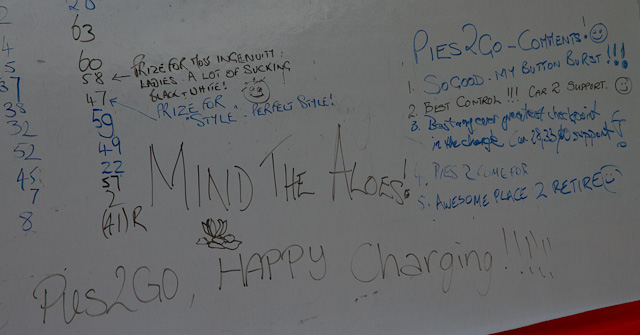 20
63
60
58 ← PRIZE FOR MOST INGENUITY:
LADIES. A LOT OF SUCKING
BLACK & WHITE!
47 PRIZE FOR
STYLE - PERFECT STYLE!
59
49
22
57
2
(41)R
2
4
5
37
38
32
52
45
7
8
PIES2GO - COMMENTS!
1. SO GOOD - MY BUTTON BURST!!!
2. BEST CONTROL!!! CAR 2 SUPPORT.
3. Best greatest checkpoint
in the charge Car support
4. PIES 2 COME FOR
5. AWESOME PLACE 2 RETIRE
MIND THE ALOES!
PIES2GO, HAPPY Charging!!!!!